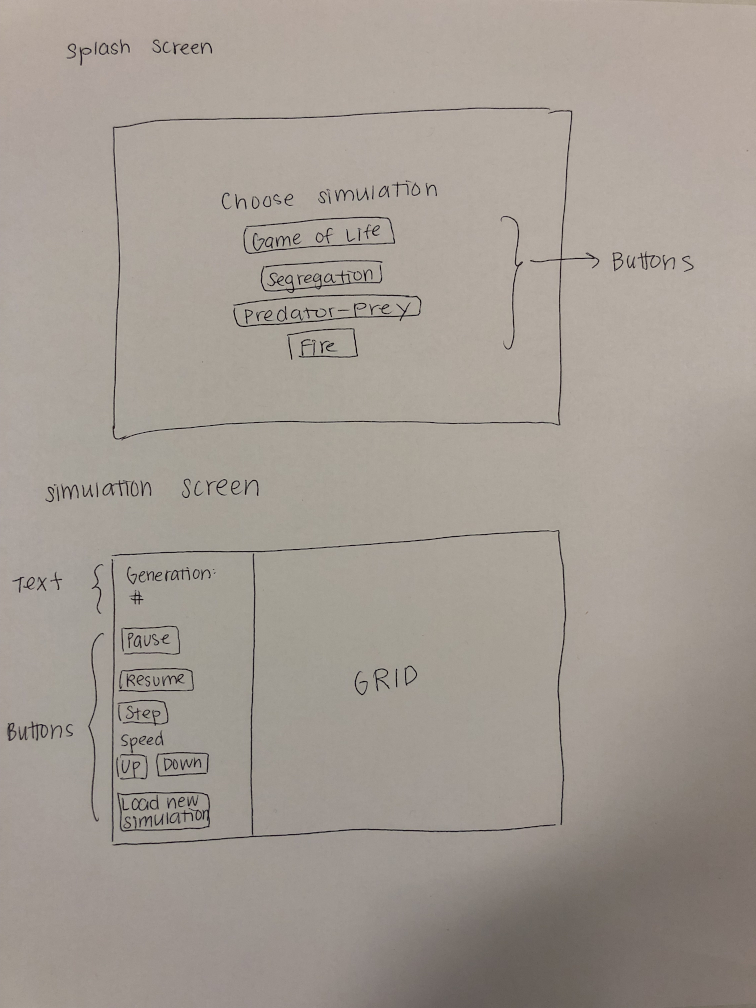 splash screen
Choose simulation
Game of Life
Segregation
Predator-Prey
Fire
Buttons
simulation screen
Text
Generation:
#
Buttons
Pause
Resume
Step
speed
Up Down
Load new
simulation
GRID